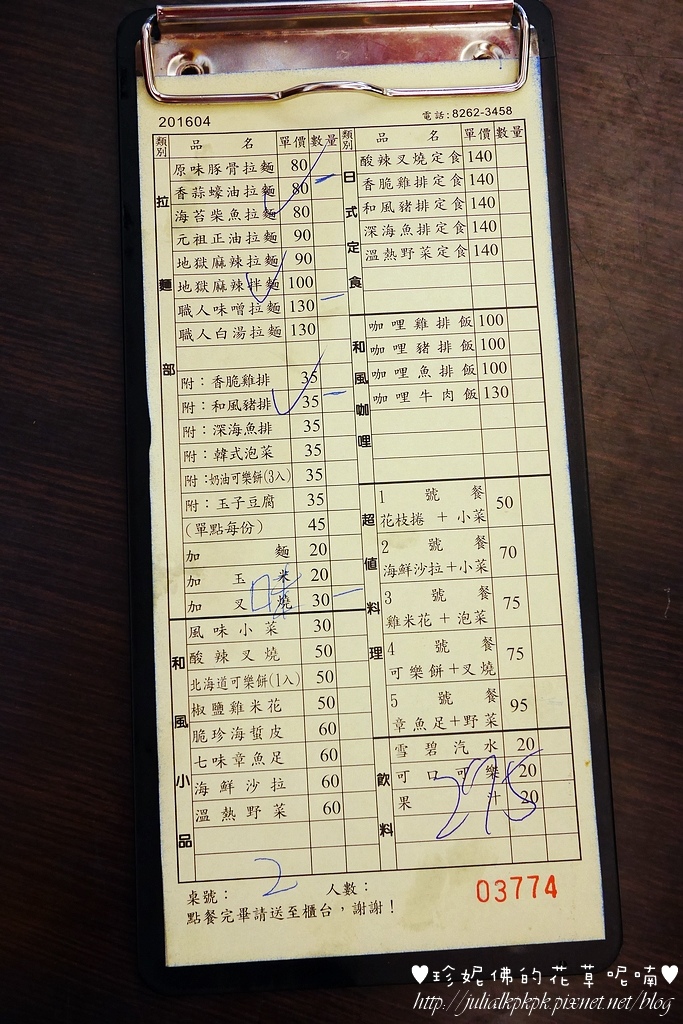 201604
電話:8262-3458
類別 品名 單價 數量
拉麵部
原味豚骨拉麵 80
香蒜蠔油拉麵 80
海苔柴魚拉麵 80
元祖正油拉麵 90
地獄麻辣拉麵 90
地獄麻辣拌麵 100
職人味噌拉麵 130
職人白湯拉麵 130
附:香脆雞排 35
附:和風豬排 35
附:深海魚排 35
附:韓式泡菜 35
附:奶油可樂餅(3入) 35
附:玉子豆腐 35
(單點每份) 45
加麵 20
加玉米 20
加叉燒 30
和風小品
風味小菜 30
酸辣叉燒 50
北海道可樂餅(1入) 50
椒鹽雞米花 50
脆珍海蜇皮 60
七味章魚足 60
海鮮沙拉 60
溫熱野菜 60
類別 品名 單價 數量
日式定食
酸辣叉燒定食 140
香脆雞排定食 140
和風豬排定食 140
深海魚排定食 140
溫熱野菜定食 140
和風咖哩
咖哩雞排飯 100
咖哩豬排飯 100
咖哩魚排飯 100
咖哩牛肉飯 130
超值料理
1號餐 50
花枝捲+小菜
2號餐 70
海鮮沙拉+小菜
3號餐 75
雞米花+泡菜
4號餐 75
可樂餅+叉燒
5號餐 95
章魚足+野菜
飲料
雪碧汽水 20
可口可樂 20
果汁 20
275
桌號: 2 人數:
03774
點餐完畢請送至櫃台,謝謝!
♥珍妮佛的花草呢喃♥
http://julialkpkpk.pixnet.net/blog